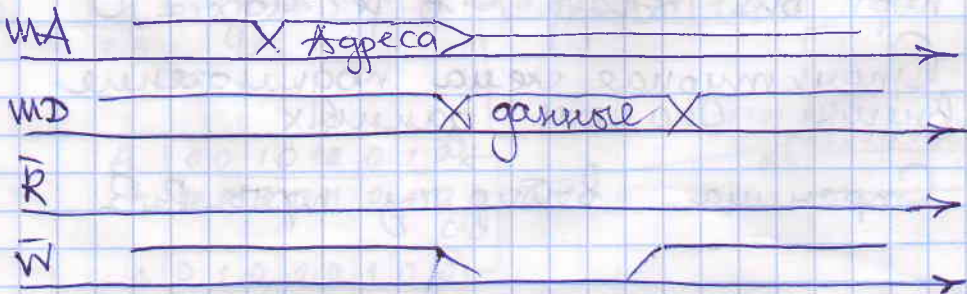 ША Адреса
ШD данные
R̅
W̅